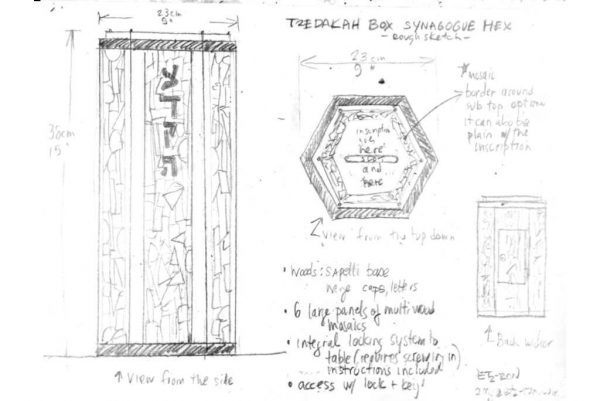 TZEDAKAH BOX SYNAGOGUE HEX
- Rough sketch -
23 cm
9"
38cm
15"
צ
ד
ק
ה
23 cm
9"
* mosaic
border around
sub top option
it can also be
plain w/ the
inscription
inscription
here
and
here
↑ View from the top down
• woods: sapelli base
wenge caps, letters
• 6 large panels of multi wood
mosaics
• integral locking system to
table (requires screwing in)
instructions included
• access w/ lock + key
↑ View from the side
↑ Back